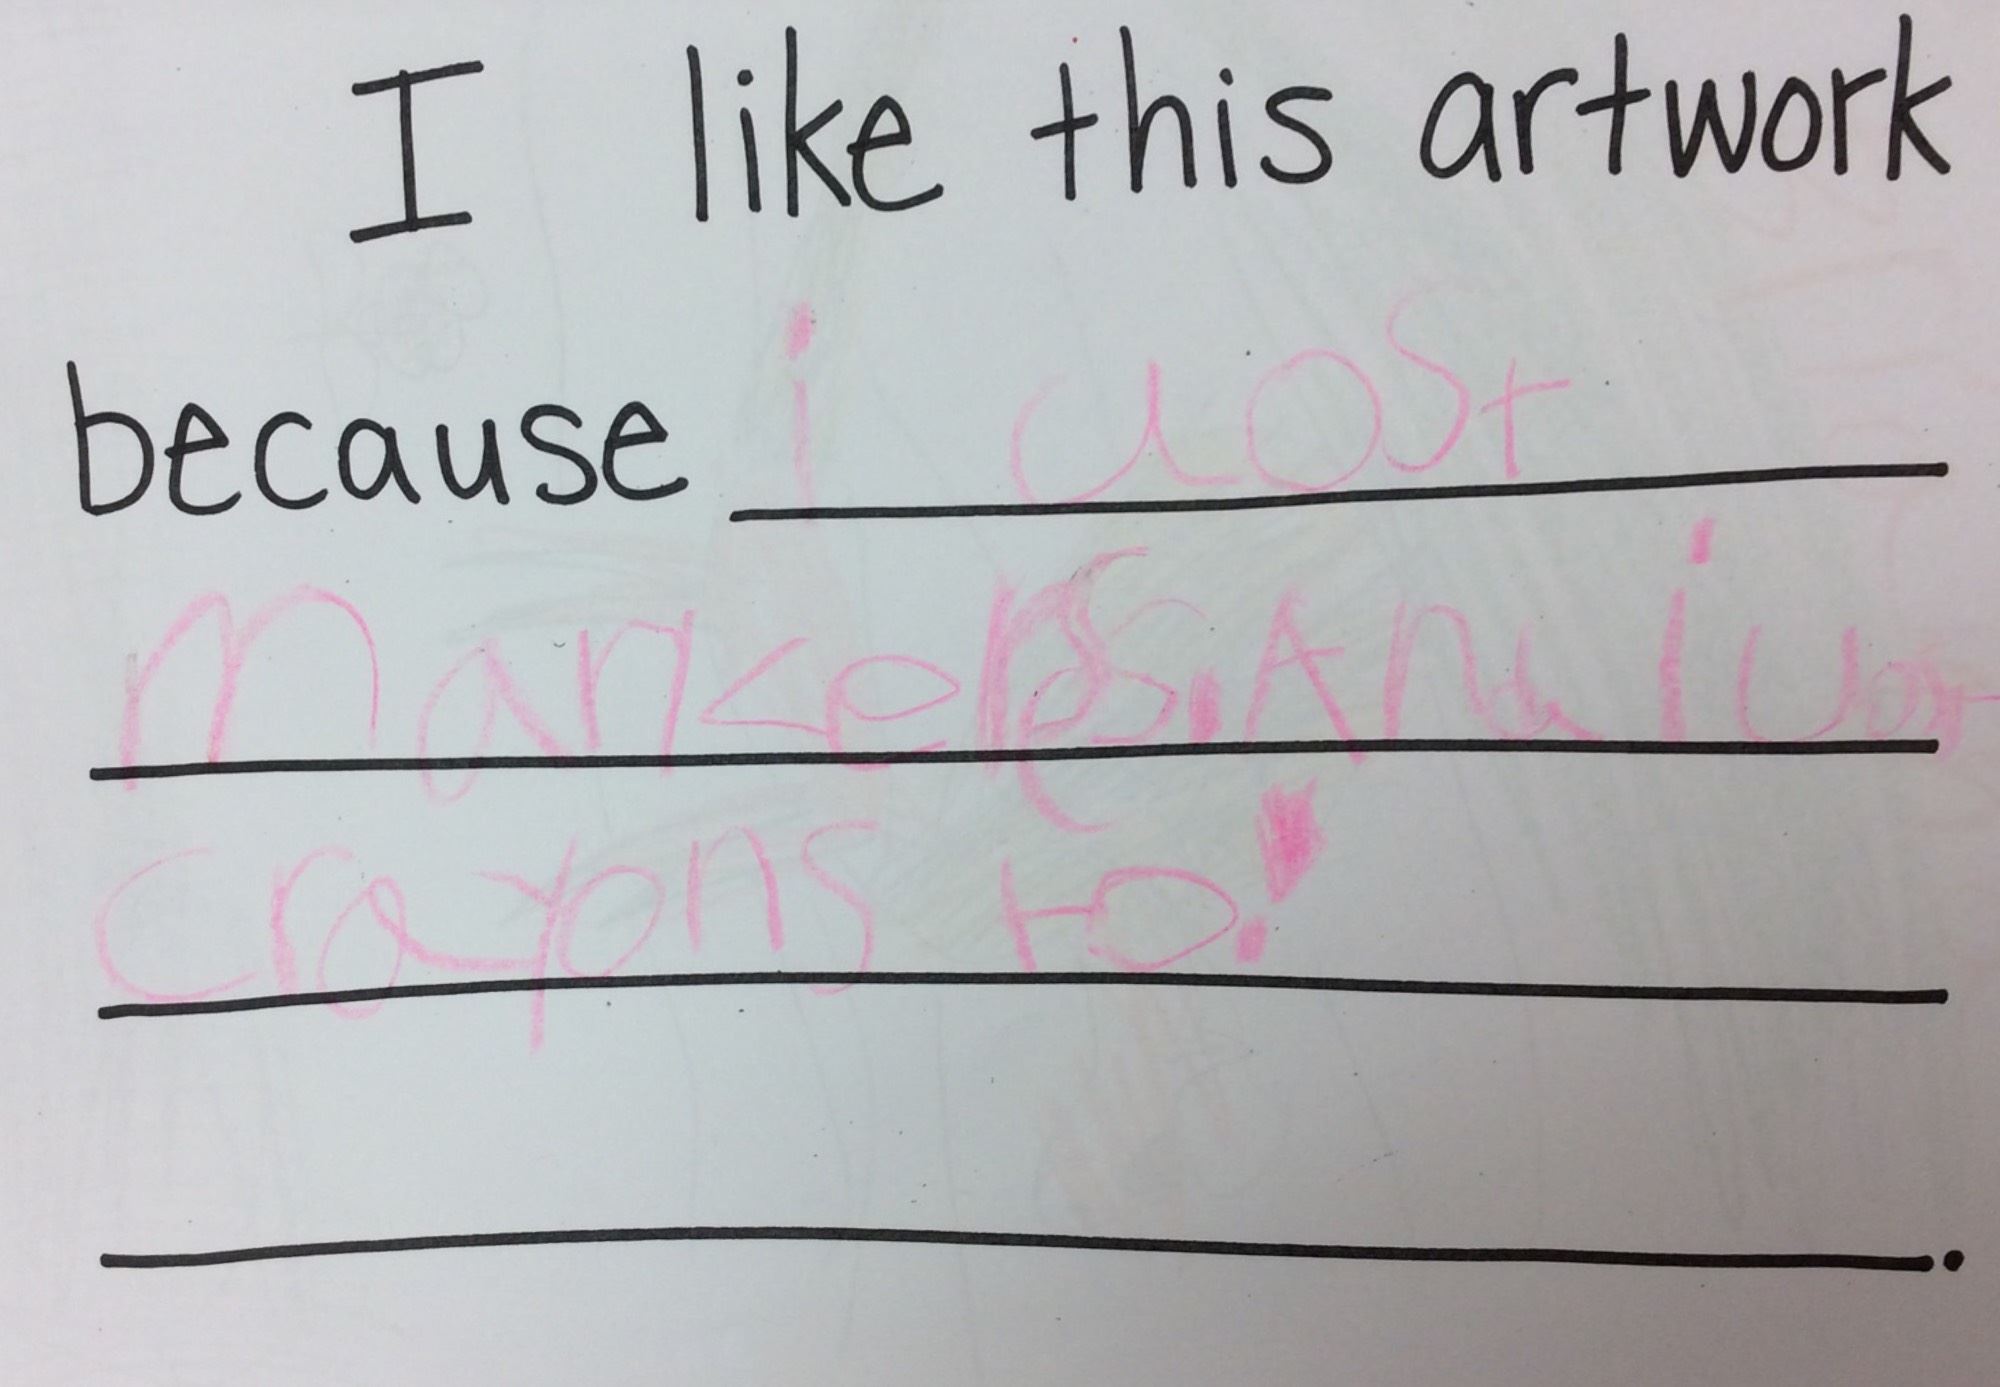 I like this artwork
because i uost
markers. And i uort
crayons to!
.